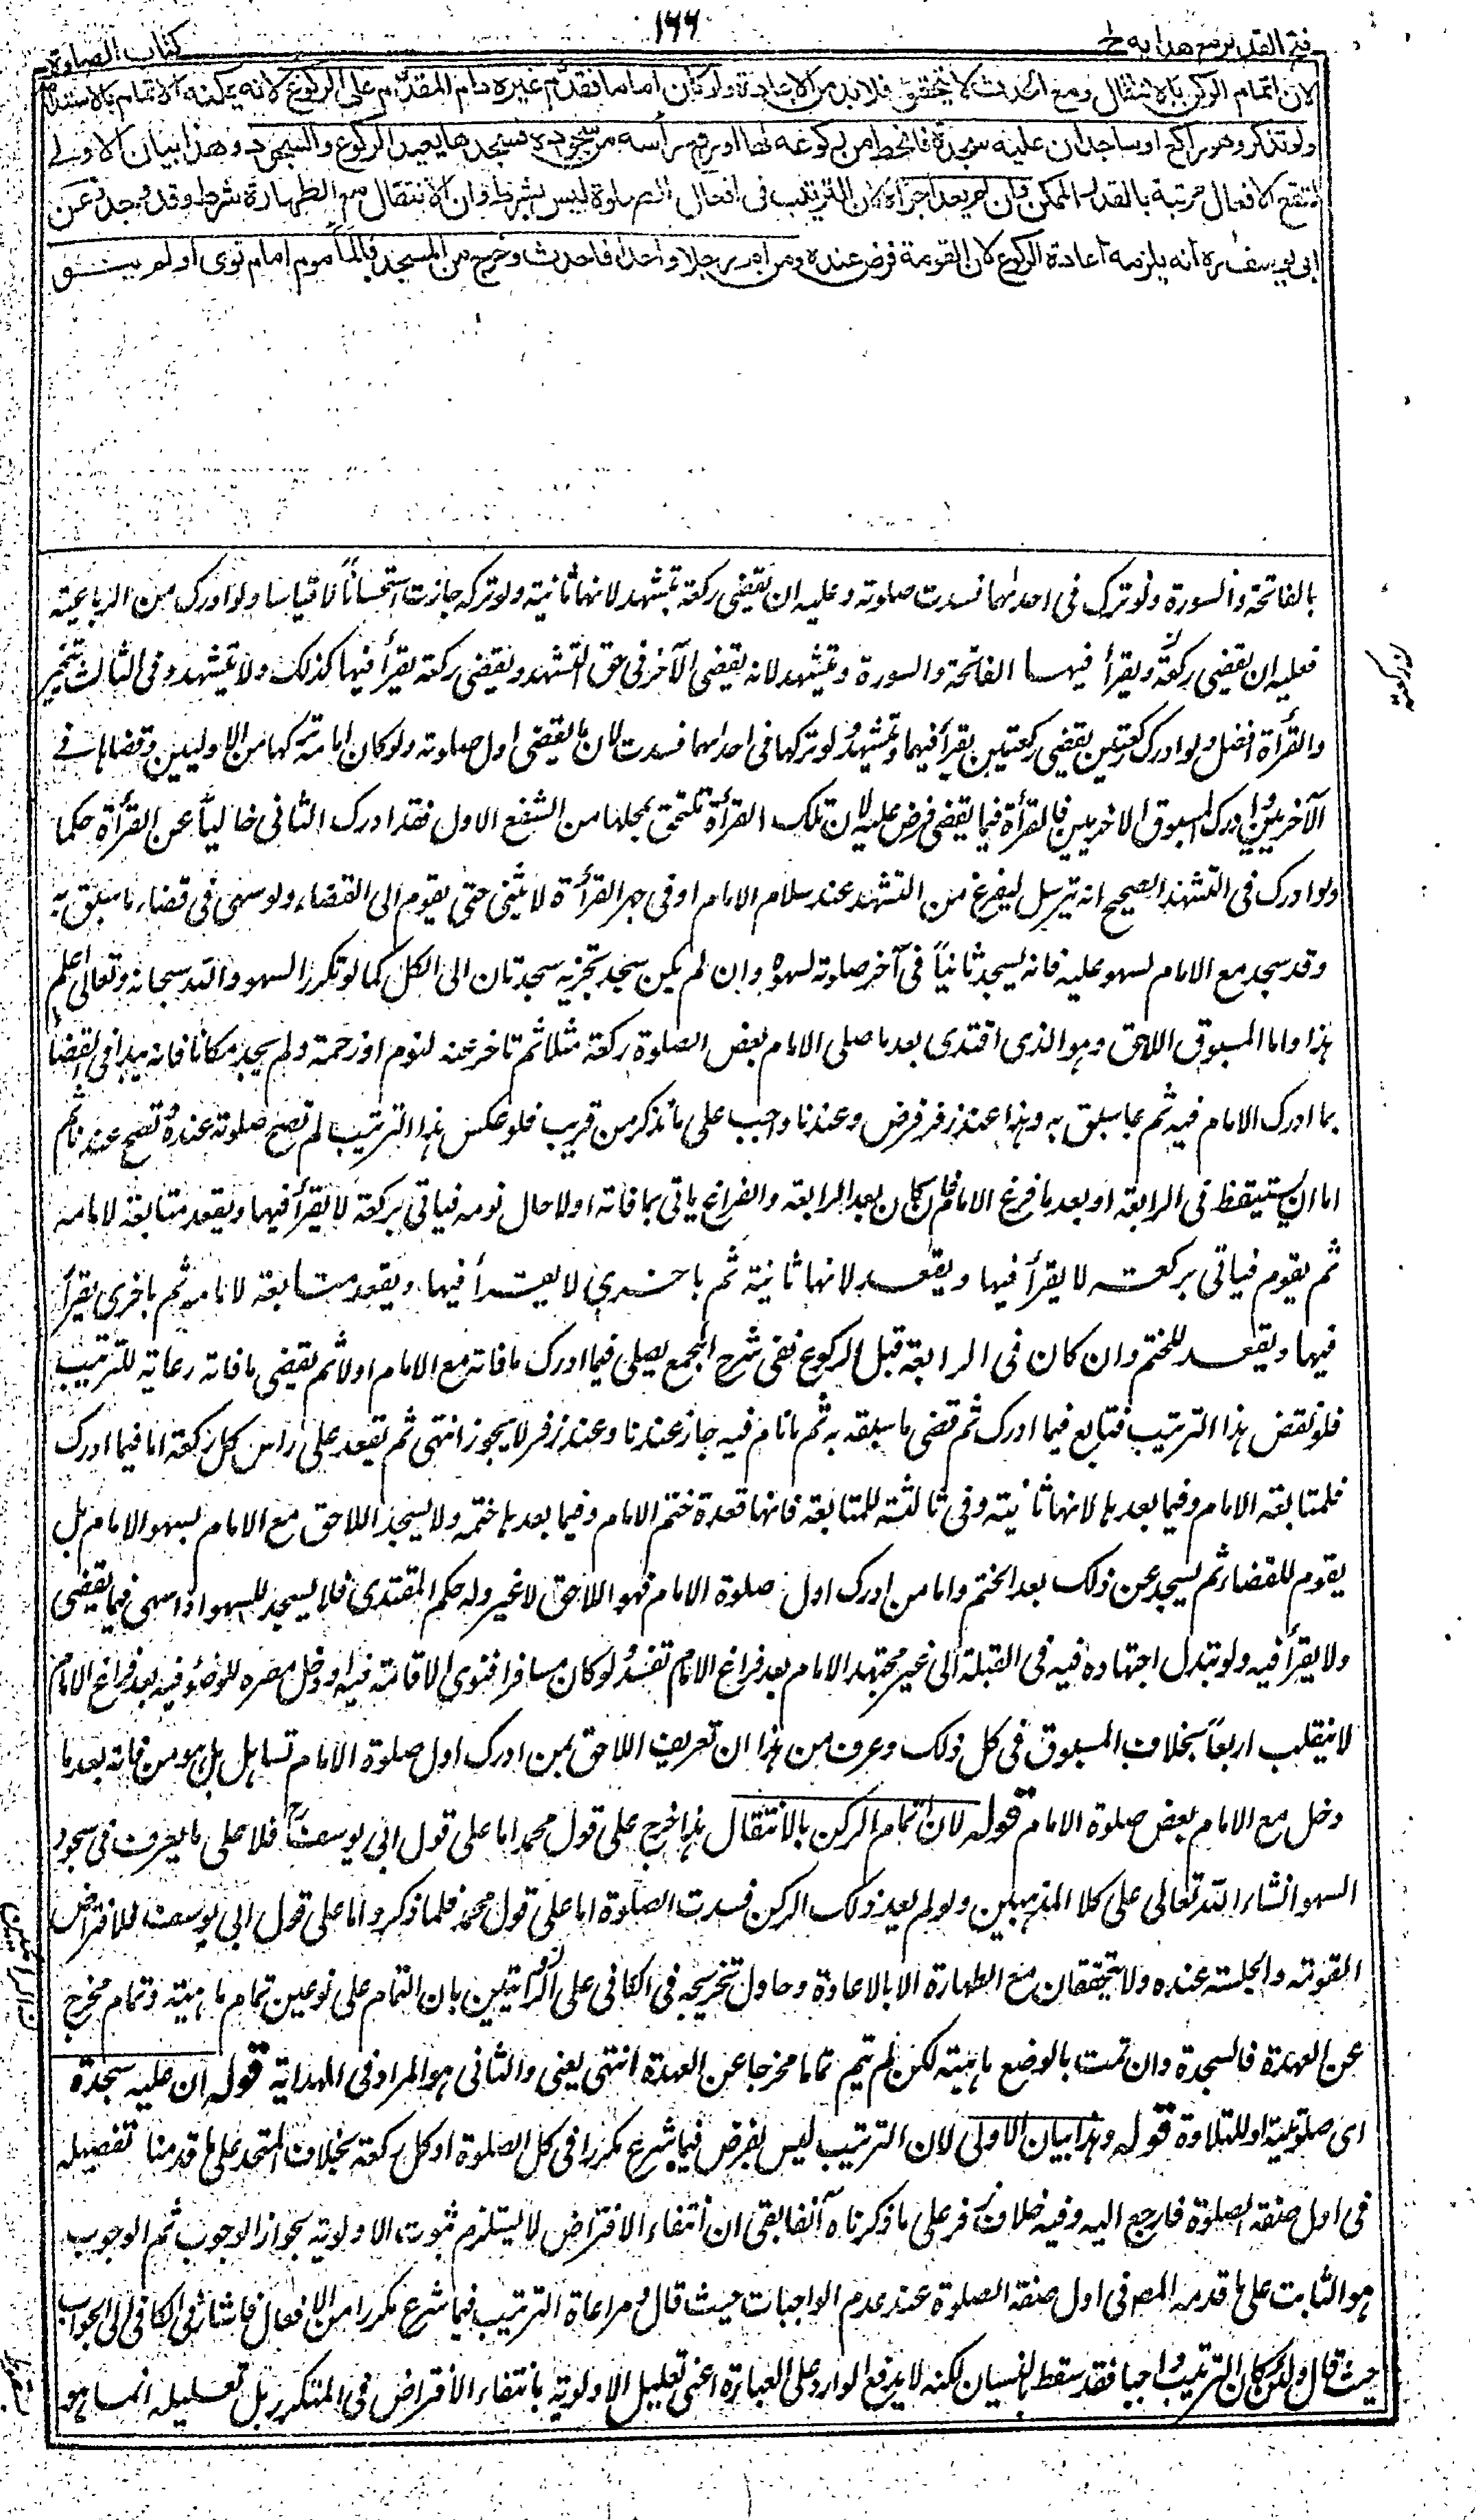 فتح القدير مع هدايه ج
١٦٦
كتاب الصلوة
لان اتمام الركن بالانتقال ومع الحدث لا يتحقق فلابد من الاعادة ولو كان اماما فقدم غيره دام المقدم على الركوع لانه يمكنه الاتمام بالاستدامة
ولو تذكر وهو راكع او ساجد ان عليه سجدة فانحط من ركوعه لها او رفع رأسه من سجوده فسجدها يعيد الركوع والسجود وهذا بيان الاولى
لتقع الافعال مرتبة بالقدر الممكن وان لم يعد اجزأه لان الترتيب في افعال الصلوة ليس بشرط ولان الانتقال مع الطهارة شرط وقد وجد وعن
ابي يوسف ره انه يلزمه اعادة الركوع لان القومة فرض عنده ومن ام رجلا واحدا فاحدث وخرج من المسجد فالمأموم امام نوى او لم ينو
بالفاتحة والسورة ولو ترك في احدهما فسدت صلوته وعليه ان يقضي ركعة بتشهد لانها ثانية ولو تركه جازت استحسانا لا قياسا ولو ادرك من الرباعية
فعليه ان يقضي ركعة ويقرأ فيها الفاتحة والسورة ويتشهد لانه يقضي الآخر في حق التشهد ويقضي ركعة يقرأ فيها كذلك ولا يتشهد وفي الثالث يتخير
والقرأة افضل ولو ادرك ركعتين يقضي ركعتين يقرأ فيهما ويتشهد ولو تركها في احداهما فسدت لان ما يقضي اول صلوته ولو كان امامه تركها من الاوليين وقضاها في
الآخريين وادرك المسبوق الاخريين فالقرأة فيما يقضي فرض عليه لان تلك القرأة تلتحق بمحلها من الشفع الاول فقد ادرك الثاني خاليا عن القرأة حكما
ولو ادرك في التشهد الصحيح انه يترسل ليفرغ من التشهد عند سلام الامام او في جهر القرأة لا يثني حتى يقوم الى القضاء ولو سهى في قضاء ما سبق به
وقد سجد مع الامام لسهو عليه فانه يسجد ثانيا في آخر صلوته لسهوه وان لم يكن سجد تجزيه سجدتان الى الكل كما لو تكرر السهو والله سبحانه وتعالى اعلم
هذا واما المسبوق اللاحق وهو الذي اقتدى بعد ما صلى الامام بعض الصلوة ركعة مثلا ثم تاخر عنه لنوم او زحمة ولم يجد مكانا فانه يبدأ في القضاء
بما ادرك الامام فيه ثم بما سبق به وهذا عند زفر فرض وعندنا واجب على ما نذكر من قريب فلو عكس هذا الترتيب لم تصح صلوته عنده وتصح عندنا ثم
اما ان يستيقظ في الرابعة او بعد ما فرغ الامام فان كان بعد الرابعة والفراغ ياتي بما فاته اولا حال نومه فياتي بركعة لا يقرأ فيها ويقعد متابعة لامامه
ثم يقوم فياتي بركعة لا يقرأ فيها ويقعد لانها ثانية ثم باخرى لا يقرأ فيها ويقعد متابعة لامامه ثم باخرى يقرأ
فيها ويقعد للختم وان كان في الرابعة قبل الركوع ففي شرح المجمع يصلي فيما ادرك ما فاته مع الامام اولا ثم يقضي ما فاته رعاية للترتيب
فلو نقض هذا الترتيب فتابع فيما ادرك ثم قضى ما سبقه به ثم ما نام فيه جاز عندنا وعند زفر لا يجوز انتهى ثم يقعد على راس كل ركعة اما فيما ادرك
فلمتابعة الامام وفيما بعدها لانها ثانيته وفي ثالثته للمتابعة فانها قعدة ختم الامام وفيما بعدها ختمه ولا يسجد اللاحق مع الامام لسهو الامام بل
يقوم للقضاء ثم يسجد عن ذلك بعد الختم واما من ادرك اول صلوة الامام فهو اللاحق لا غير وله حكم المقتدي فلا يسجد للسهو اذا سهى فيما يقضي
ولا يقرأ فيه ولو تبدل اجتهاده فيه في القبلة الى غير مجتهد الامام بعد فراغ الامام تفسد ولو كان مسافرا فنوى الاقامة فيه او دخل مصره للوضوء فيه بعد فراغ الامام
لا ينقلب اربعا بخلاف المسبوق في كل ذلك وعرف من هذا ان تعريف اللاحق بمن ادرك اول صلوة الامام تساهل بل هو من فاته بعد ما
دخل مع الامام بعض صلوة الامام قوله لان اتمام الركن بالانتقال هذا خرج على قول محمد اما على قول ابي يوسف رح فلا على ما يعرف في سجود
السهو انشاء الله تعالى على كلا المذهبين ولو لم يعد ذلك الركن فسدت الصلوة اما على قول محمد فلما ذكر واما على قول ابي يوسف فللافتراض
القومة والجلسة عنده ولا يتحققان مع الطهارة الا بالاعادة وحاول تخريجه في الكافي على الروايتين بان التمام على نوعين تمام ماهيته وتمام مخرج
عن العهدة فالسجدة وان تمت بالوضع ماهيته لكن لم يتم تماما مخرجا عن العهدة انتهى يعني والثاني هو المراد في الهداية قوله ان عليه سجدة
اى صلوتية او للتلاوة قوله وهذا بيان الاولى لان الترتيب ليس بفرض فيما شرع مكررا في كل الصلوة او كل ركعة بخلاف المتحد على ما قدمنا تفصيله
في اول صفة الصلوة فارجع اليه وفيه خلاف زفر على ما ذكرناه آنفا بقى ان انتفاء الافتراض لا يستلزم ثبوت الاولوية بجواز الوجوب ثم الوجوب
هو الثابت على ما قدمه المصـ في اول صفة الصلوة عند عدم الواجبات حيث قال ومراعاة الترتيب فيما شرع مكررا من الافعال فاشار في الكافي الى الجواب
حيث قال ولئن كان الترتيب واجبا فقد سقط بالنسيان لكنه لا يدفع الوارد على العبارة اعني تعليل الاولوية بانتفاء الافتراض في المتكرر بل تعليله انما هو